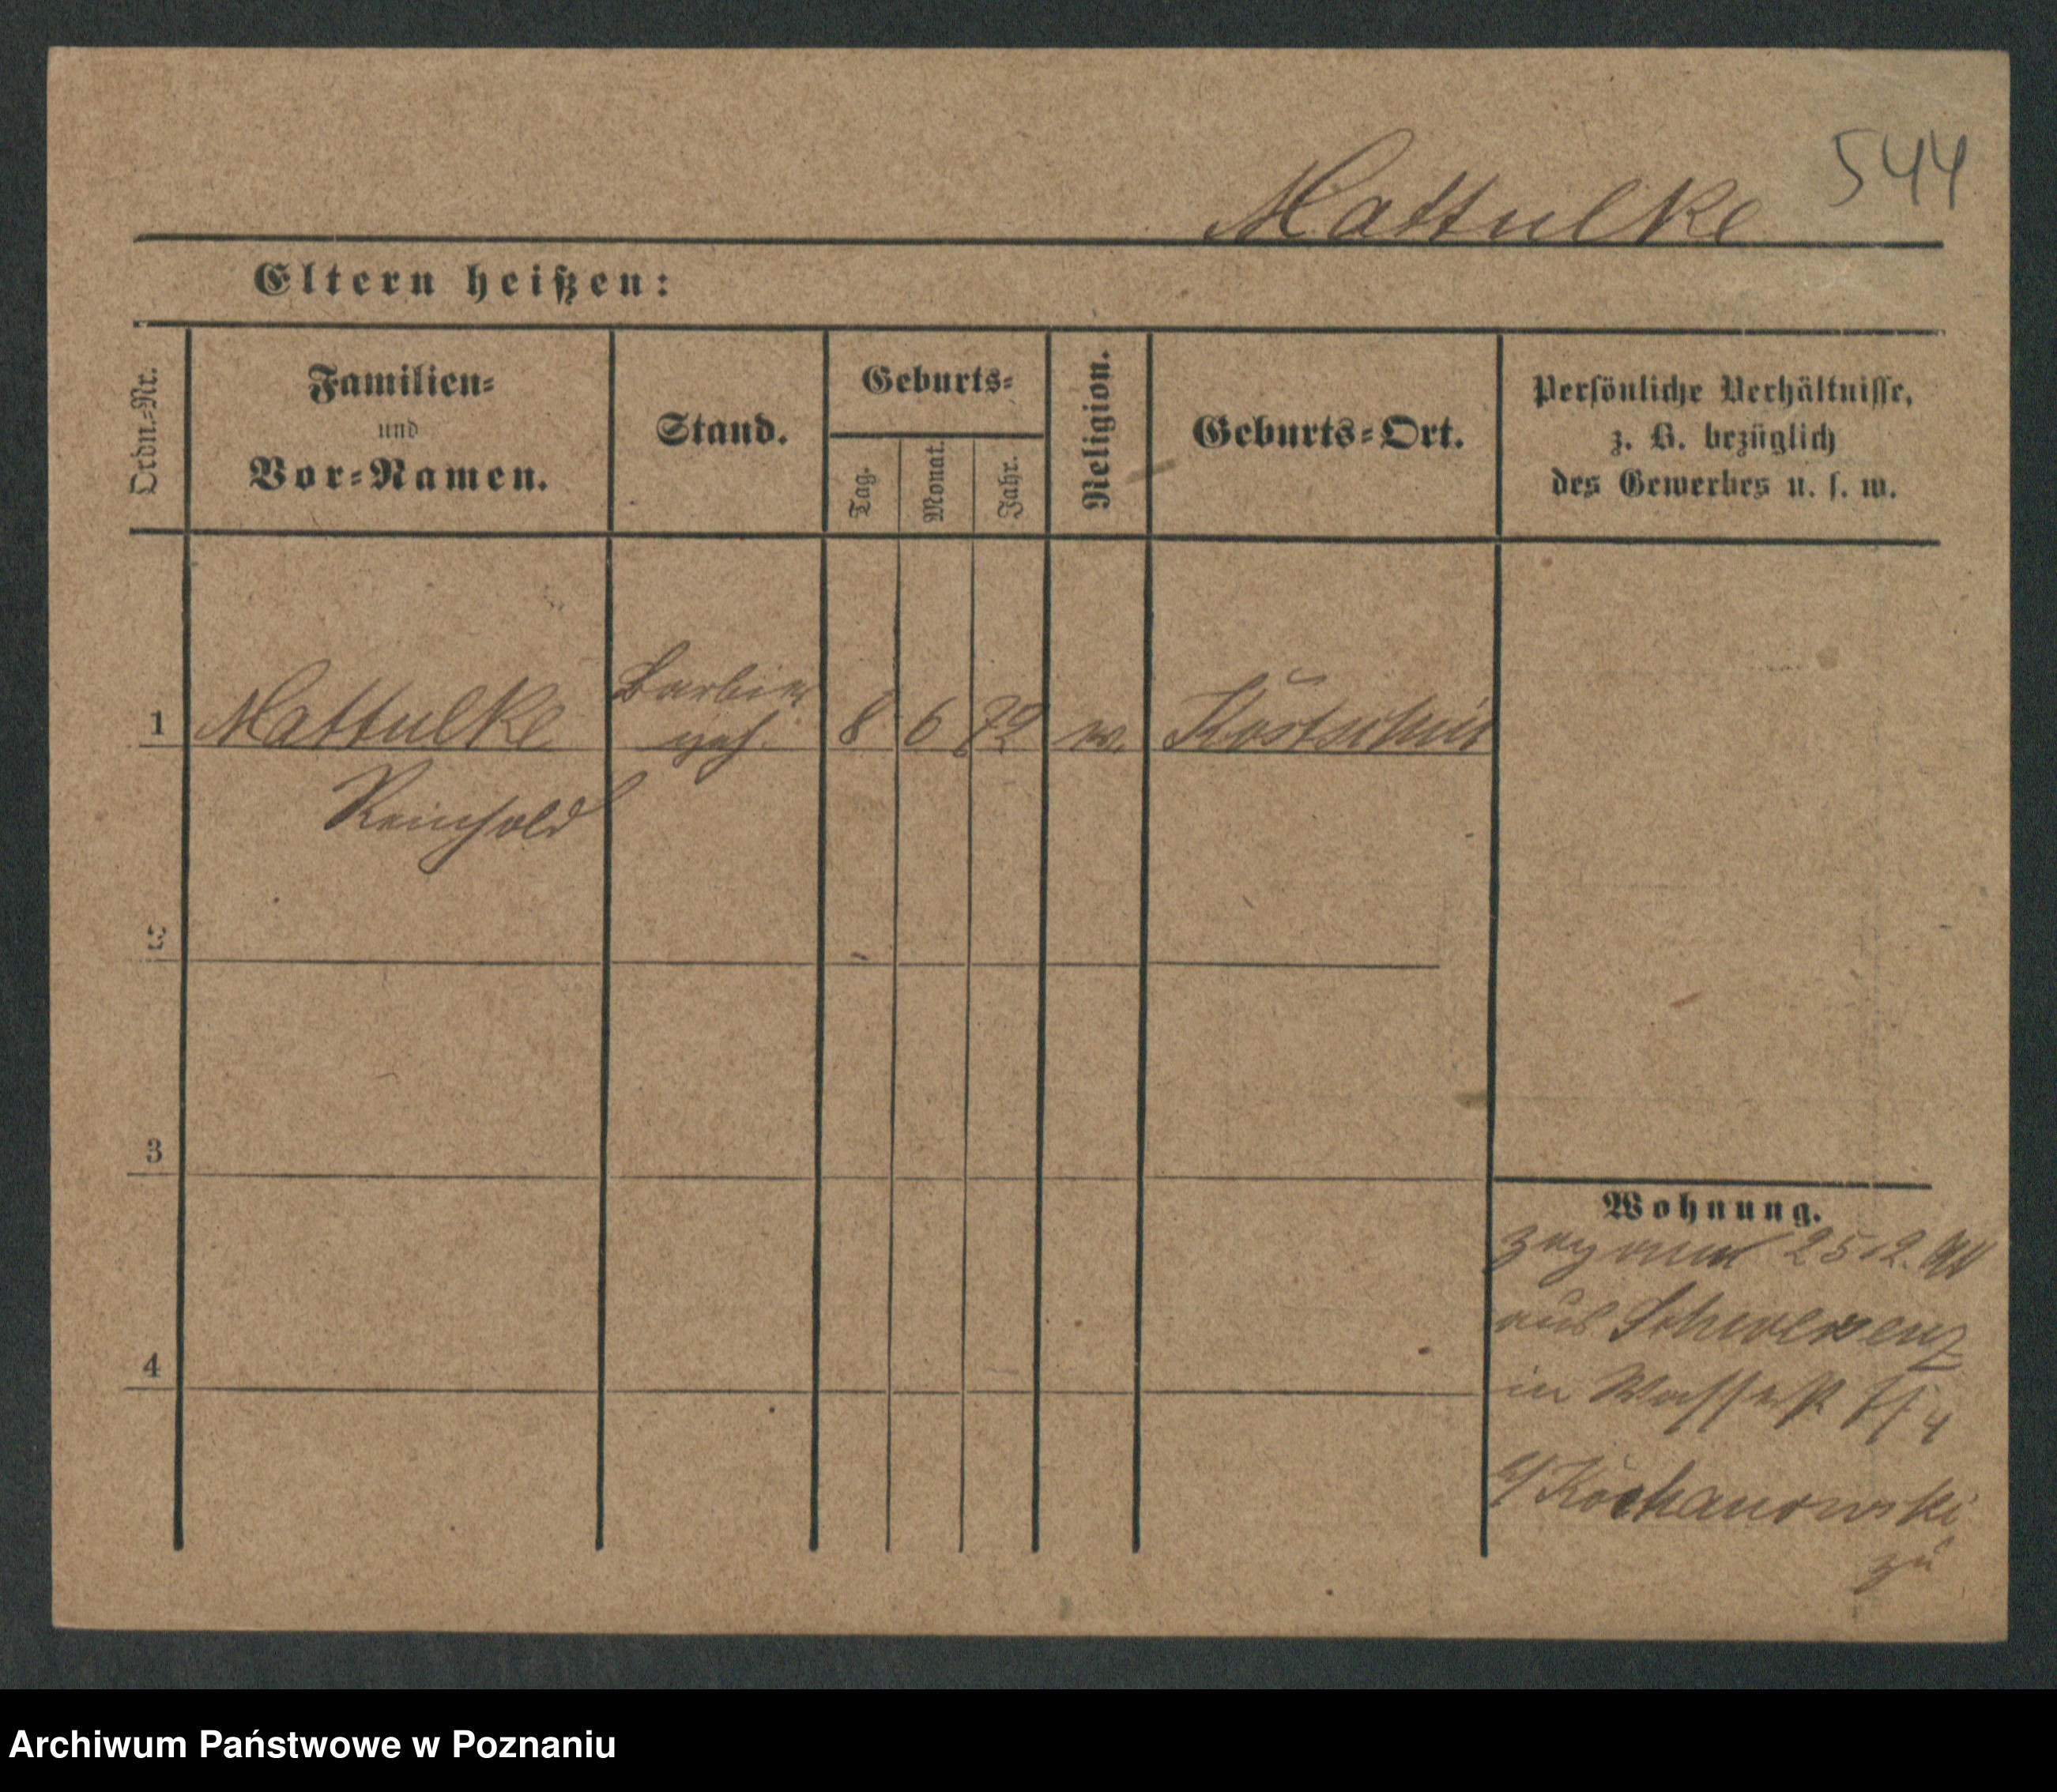 544
Mattulke
Eltern heißen:
Ordn.-Nr.
Familien-
und
Vor-Namen.
Stand.
Geburts-
Tag.
Monat.
Jahr.
Religion.
Geburts-Ort.
Persönliche Verhältnisse,
z. B. bezüglich
des Gewerbes u. s. w.
1 Mattulke Barbier 8 6 72
Reinhold
2
3
4
Wohnung.
zog am 25 12.
aus Schwersenz
in Wasserst
Kochanowski
zu
Archiwum Państwowe w Poznaniu